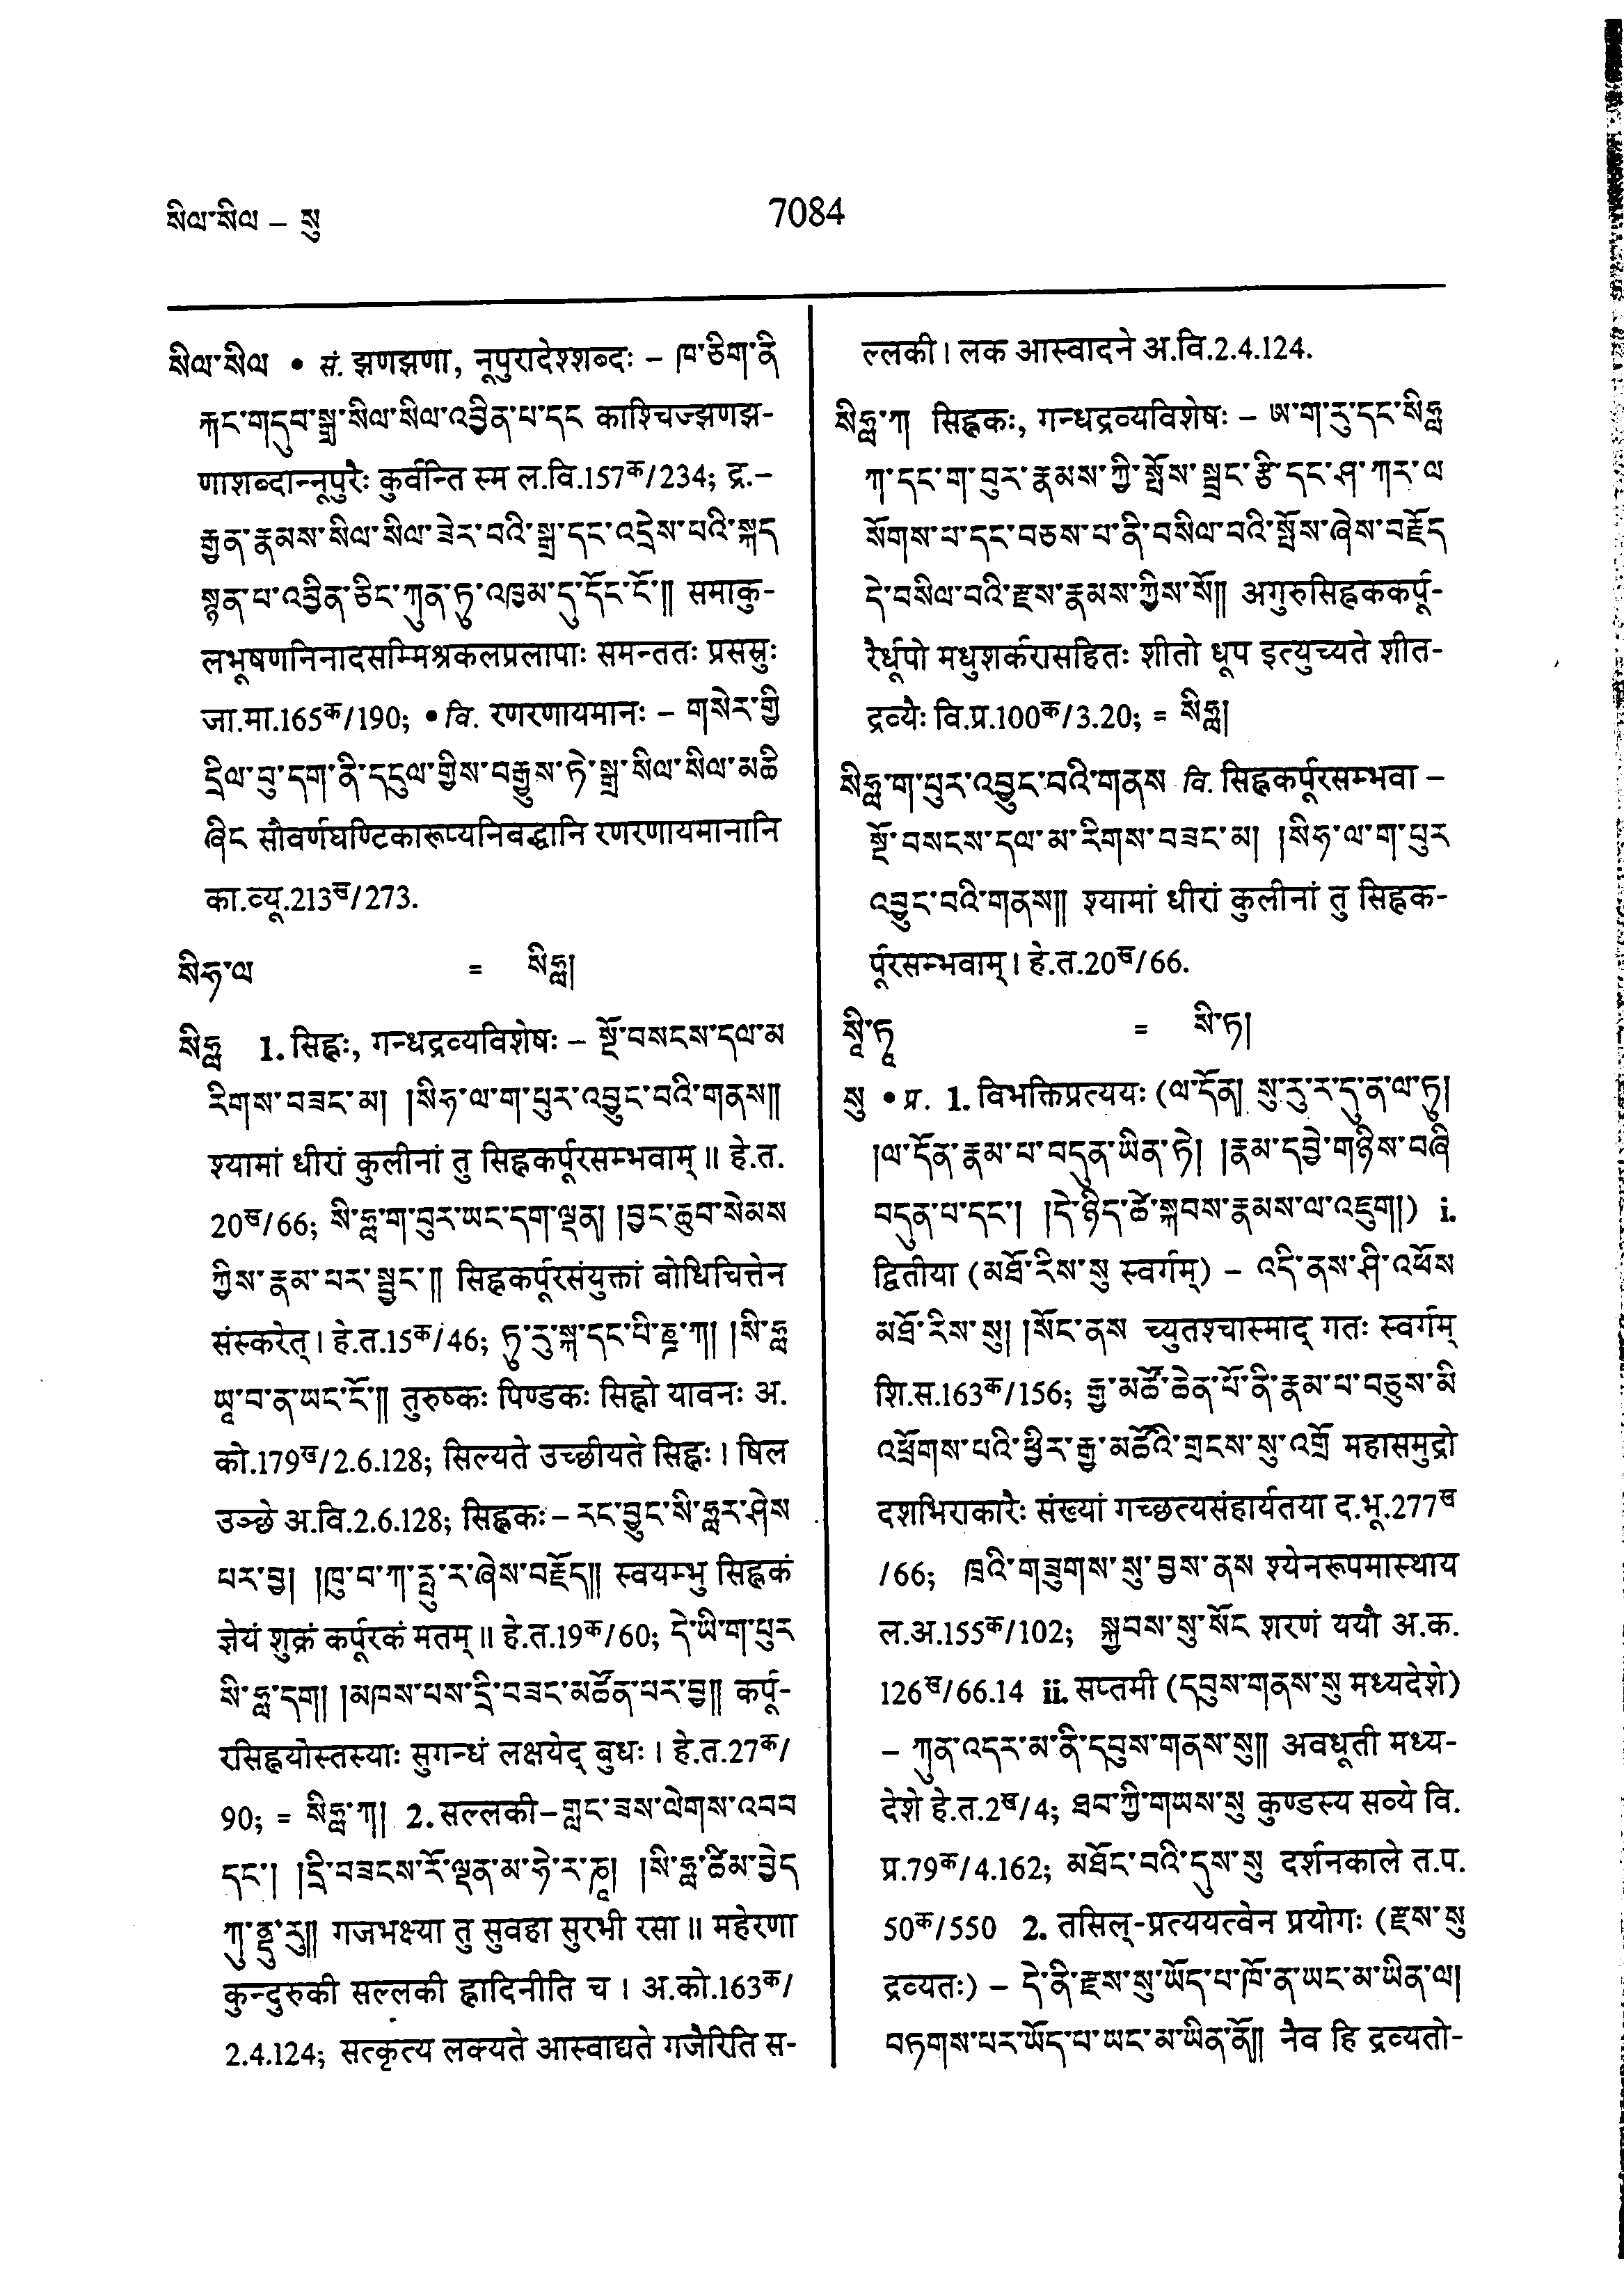 སིལ་སིལ – སུ
7084
སིལ་སིལ • सं. झणझणा, नूपुरादेश्शब्दः – ཁ་ཅིག་ནི
རྐང་གདུབ་སྒྲ་སིལ་སིལ་འབྱིན་པ་དང काश्चिज्झणझ-
णाशब्दान्नूपुरैः कुर्वन्ति स्म ल.वि.157क/234; द्र.–
རྒྱན་རྣམས་སིལ་སིལ་ཟེར་བའི་སྒྲ་དང་འདྲེས་པའི་སྐད
སྙན་པ་འབྱིན་ཅིང་ཀུན་ཏུ་འཁྱམ་དུ་དོང་ངོ་།། समाकु-
लभूषणनिनादसम्मिश्रकलप्रलापाः समन्ततः प्रसस्रुः
जा.मा.165क/190; • वि. रणरणायमानः – གསེར་གྱི
དྲིལ་བུ་དག་ནི་དངུལ་གྱིས་བརྒྱུས་ཏེ་སྒྲ་སིལ་སིལ་མཆི
ཞིང सौवर्णघण्टिकारूप्यनिबद्धानि रणरणायमानानि
का.व्यू.213ख/273.
སིཧ་ལ = སིཧླ།
སིཧླ 1. सिह्लः, गन्धद्रव्यविशेषः – སྔོ་བསངས་དལ་མ
རིགས་བཟང་མ། །སིཧ་ལ་ག་པུར་འབྱུང་བའི་གནས།།
श्यामां धीरां कुलीनां तु सिह्लकर्पूरसम्भवाम् ॥ हे.त.
20ख/66; སི་ཧླ་ག་བུར་ཡང་དག་ལྡན། །བྱང་ཆུབ་སེམས
ཀྱིས་རྣམ་པར་སྦྱང་།། सिह्लकर्पूरसंयुक्तां बोधिचित्तेन
संस्करेत् । हे.त.15क/46; ཏུ་རུ་སྐ་དང་པི་ཎྜ་ཀ། །སི་ཧླ
ཡཱ་བ་ན་ཡང་ངོ་།། तुरुष्कः पिण्डकः सिह्लो यावनः अ.
को.179ख/2.6.128; सिल्यते उच्छीयते सिह्लः । षिल
उञ्छे अ.वि.2.6.128; सिह्लकः – རང་བྱུང་སི་ཧླར་ཤེས
པར་བྱ། །ཁུ་བ་ཀ་རྤུ་ར་ཞེས་བརྗོད།། स्वयम्भु सिह्लकं
ज्ञेयं शुक्रं कर्पूरकं मतम् ॥ हे.त.19क/60; དེ་ཡི་ག་པུར
སི་ཧླ་དག། །མཁས་པས་དྲི་བཟང་མཚོན་པར་བྱ།། कर्पू-
रसिह्लयोस्तस्याः सुगन्धं लक्षयेद् बुधः । हे.त.27क/
90; = སིཧླ་ཀ། 2. सल्लकी – གླང་ཟས་ལེགས་འབབ
དང་། །དྲི་བཟངས་རོ་ལྡན་མ་ཧེ་ར་ཎཱ། །སི་ཧླ་ཚིམ་བྱེད
ཀུ་ནྡུ་རུ།། गजभक्ष्या तु सुवहा सुरभी रसा ॥ महेरणा
कुन्दुरुकी सल्लकी ह्लादिनीति च । अ.को.163क/
2.4.124; सत्कृत्य लक्यते आस्वाद्यते गजैरिति स-
ल्लकी । लक आस्वादने अ.वि.2.4.124.
སིཧླ་ཀ सिह्लकः, गन्धद्रव्यविशेषः – ཨ་ག་རུ་དང་སིཧླ
ཀ་དང་ག་བུར་རྣམས་ཀྱི་སྤོས་སྦྲང་རྩི་དང་ཤ་ཀར་ལ
སོགས་པ་དང་བཅས་པ་ནི་བསིལ་བའི་སྤོས་ཞེས་བརྗོད
དེ་བསིལ་བའི་རྫས་རྣམས་ཀྱིས་སོ།། अगुरुसिह्लककर्पू-
रैर्धूपो मधुशर्करासहितः शीतो धूप इत्युच्यते शीत-
द्रव्यैः वि.प्र.100क/3.20; = སིཧླ།
སིཧླ་ག་པུར་འབྱུང་བའི་གནས वि. सिह्लकर्पूरसम्भवा –
སྔོ་བསངས་དལ་མ་རིགས་བཟང་མ། །སིཧ་ལ་ག་པུར
འབྱུང་བའི་གནས།། श्यामां धीरां कुलीनां तु सिह्लक-
र्पूरसम्भवाम् । हे.त.20ख/66.
སཱི་ཏཱ = སི་ཏ།
སུ • प्र. 1. विभक्तिप्रत्ययः (ལ་དོན། སུ་རུ་ར་དུ་ན་ལ་ཏུ།
།ལ་དོན་རྣམ་པ་བདུན་ཡིན་ཏེ། །རྣམ་དབྱེ་གཉིས་བཞི
བདུན་པ་དང་། །དེ་ཉིད་ཚེ་སྐབས་རྣམས་ལ་འཇུག།) i.
द्वितीया (མཐོ་རིས་སུ स्वर्गम्) – འདི་ནས་ཤི་འཕོས
མཐོ་རིས་སུ། །སོང་ནས च्युतश्चास्माद् गतः स्वर्गम्
शि.स.163क/156; རྒྱ་མཚོ་ཆེན་པོ་ནི་རྣམ་པ་བཅུས་མི
འཕྲོགས་པའི་ཕྱིར་རྒྱ་མཚོའི་གྲངས་སུ་འགྲོ महासमुद्रो
दशभिराकारैः संख्यां गच्छत्यसंहार्यतया द.भू.277ख
/66; ཁྲའི་གཟུགས་སུ་བྱས་ནས श्येनरूपमास्थाय
ल.अ.155क/102; སྐྱབས་སུ་སོང शरणं ययौ अ.क.
126ख/66.14 ii. सप्तमी (དབུས་གནས་སུ मध्यदेशे)
– ཀུན་འདར་མ་ནི་དབུས་གནས་སུ།། अवधूती मध्य-
देशे हे.त.2ख/4; ཐབ་ཀྱི་གཡས་སུ कुण्डस्य सव्ये वि.
प्र.79क/4.162; མཐོང་བའི་དུས་སུ दर्शनकाले त.प.
50क/550 2. तसिल्-प्रत्ययत्वेन प्रयोगः (རྫས་སུ
द्रव्यतः) – དེ་ནི་རྫས་སུ་ཡོད་པ་ཁོ་ན་ཡང་མ་ཡིན་ལ།
བཏགས་པར་ཡོད་པ་ཡང་མ་ཡིན་ནོ།། नैव हि द्रव्यतो-